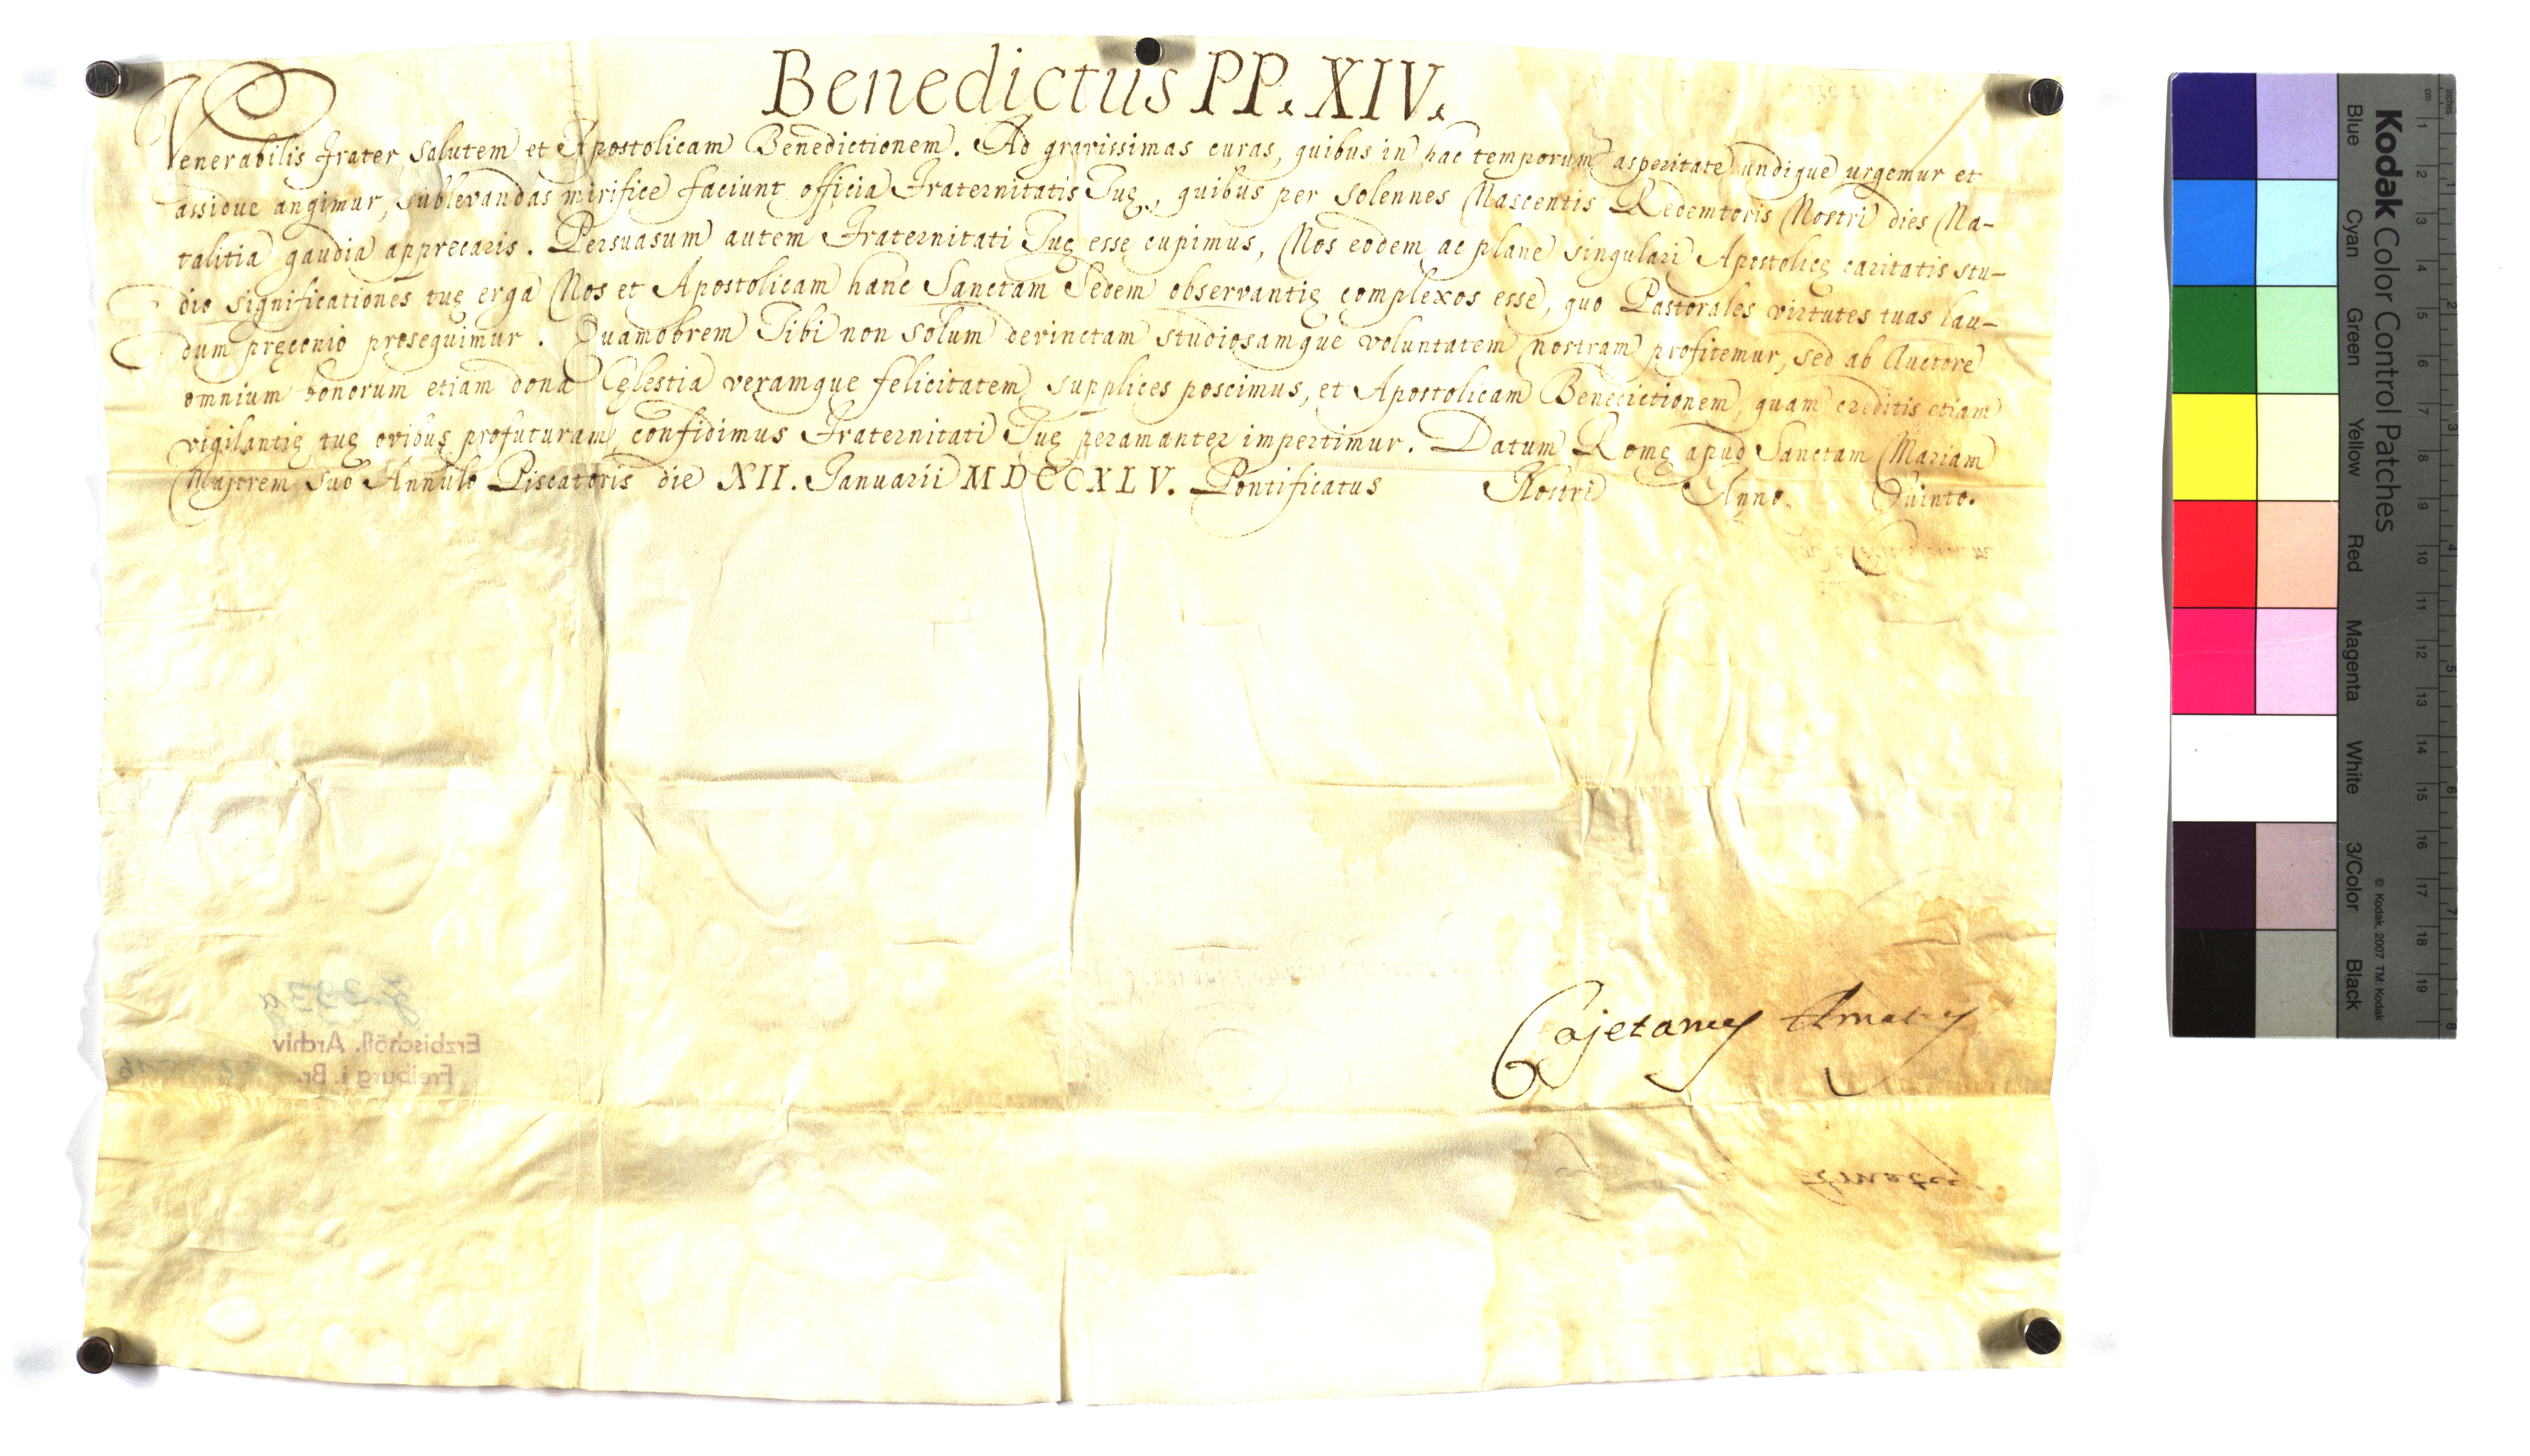 Benedictus PP. XIV.
Venerabilis Frater Salutem et Apostolicam Benedictionem. Ad gravissimas curas, quibus in hac temporum asperitate undique urgemur et
assidue angimur, sublevandas mirifice faciunt officia Fraternitatis Tuę, quibus per solennes Nascentis Redemtoris Nostri dies Na-
talitia gaudia apprecaris. Persuasum autem Fraternitati Tuę esse cupimus, Nos eodem ac plane singulari Apostolicę caritatis stu-
dio significationes tuę erga Nos et Apostolicam hanc Sanctam Sedem observantię complexos esse, quo Pastorales virtutes tuas lau-
dum pręconio prosequimur. Quamobrem Tibi non solum devinctam studiosamque voluntatem nostram profitemur, sed ab Auctore
omnium bonorum etiam dona Cęlestia veramque felicitatem supplices poscimus, et Apostolicam Benedictionem, quam creditis etiam
vigilantię tuę ovibus profuturam confidimus Fraternitati Tuę peramanter impertimur. Datum Romę apud Sanctam Mariam
Majorem sub Annulo Piscatoris die XII. Januarii MDCCXLV. Pontificatus Nostri Anno Quinto.
Cajetanus Amatus
Erzbischöfl. Archiv
Freiburg i. Br.
Kodak Color Control Patches
Blue Cyan Green Yellow Red Magenta White 3/Color Black
© Kodak, 2007 TM: Kodak
cm 1 2 3 4 5 6 7 8 9 10 11 12 13 14 15 16 17 18 19
inches 1 2 3 4 5 6 7 8